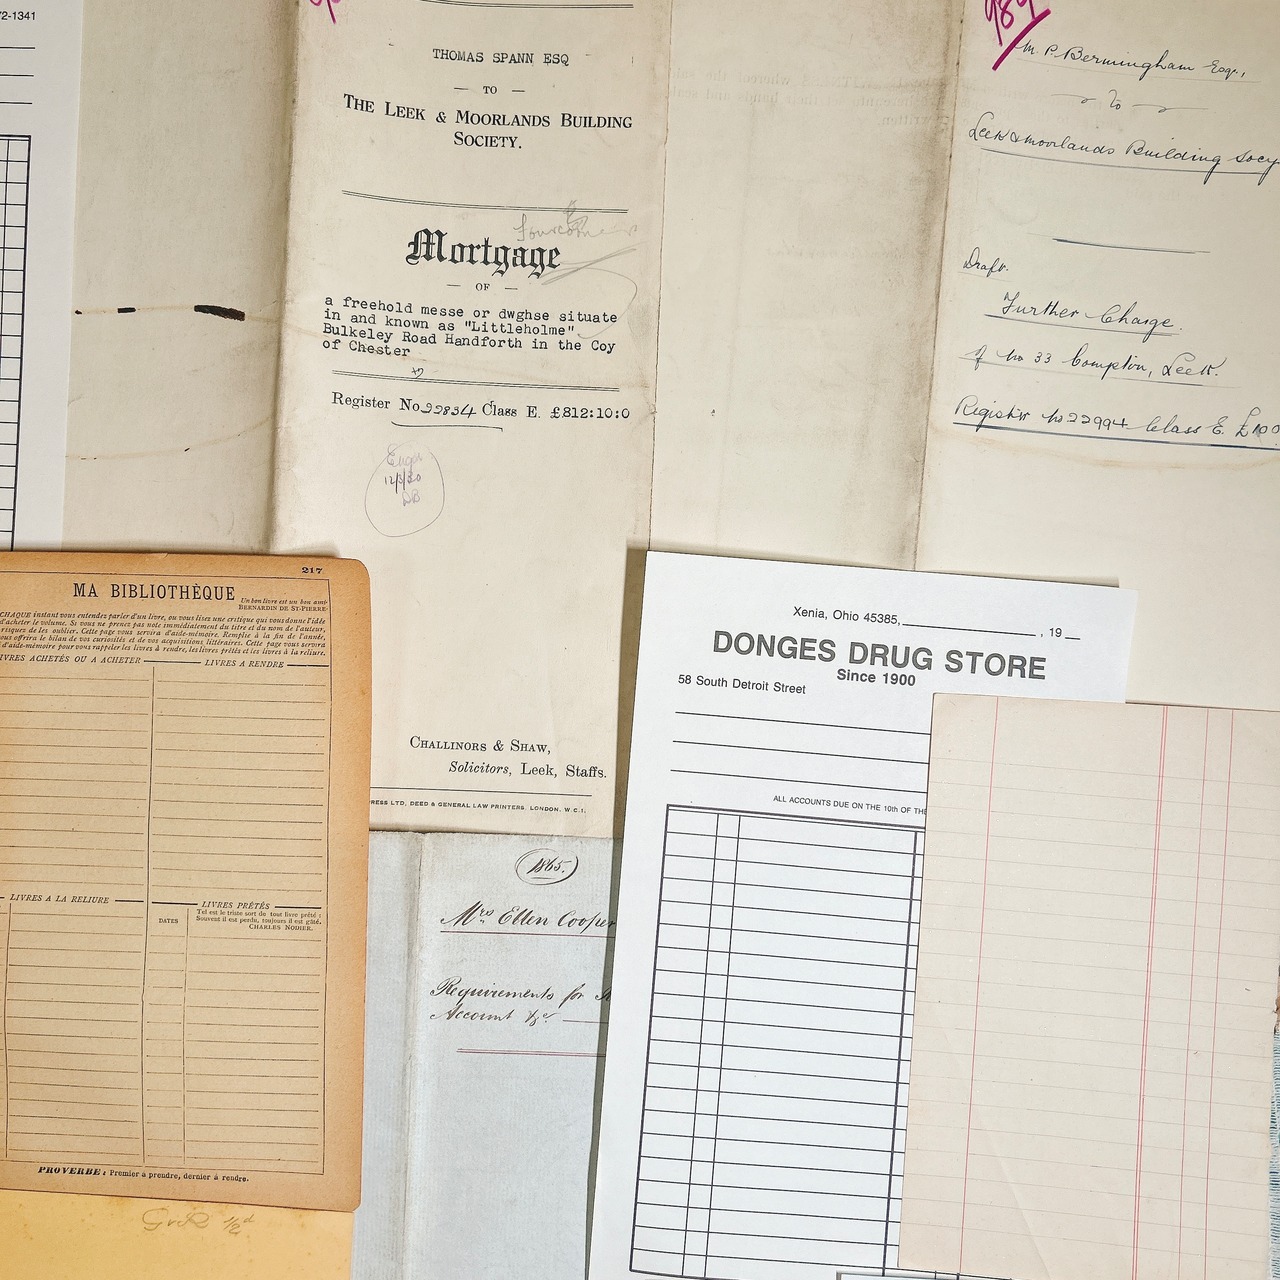 2-1341
THOMAS SPANN ESQ
— TO —
THE LEEK & MOORLANDS BUILDING
SOCIETY.
Mortgage
— OF —
a freehold messe or dwghse situate
in and known as "Littleholme"
Bulkeley Road Handforth in the Coy
of Chester
Register No 22834 Class E. £812:10:0
12/3/30
DB
CHALLINORS & SHAW,
Solicitors, Leek, Staffs.
PRESS LTD, DEED & GENERAL LAW PRINTERS, LONDON. W.C.1.
M. P. Bermingham Esqr.,
To
Leek & Moorlands Building Socy
Draft.
Further Charge.
of No 33 Compton, Leek.
Register No 22994 Class E. £100
217
MA BIBLIOTHÈQUE
Un bon livre est un bon ami
BERNARDIN DE ST-PIERRE
CHAQUE instant vous entendez parler d'un livre, ou vous lisez une critique qui vous donne l'idée
d'acheter le volume. Si vous ne prenez pas note immédiatement du titre et du nom de l'auteur,
risquez de les oublier. Cette page vous servira d'aide-mémoire. Remplie à la fin de l'année,
vous offrira le bilan de vos curiosités et de vos acquisitions littéraires. Cette page vous servira
d'aide-mémoire pour vous rappeler les livres à rendre, les livres prêtés et les livres à la reliure.
LIVRES ACHETÉS OU A ACHETER
LIVRES A RENDRE
LIVRES A LA RELIURE
LIVRES PRÊTÉS
DATES
Tel est le triste sort de tout livre prêté :
Souvent il est perdu, toujours il est gâté.
CHARLES NODIER.
PROVERBE : Premier à prendre, dernier à rendre.
1865.
Mrs Ellen Cooper
Requirements for
Account &c
Xenia, Ohio 45385, , 19
DONGES DRUG STORE
Since 1900
58 South Detroit Street
ALL ACCOUNTS DUE ON THE 10th OF THE